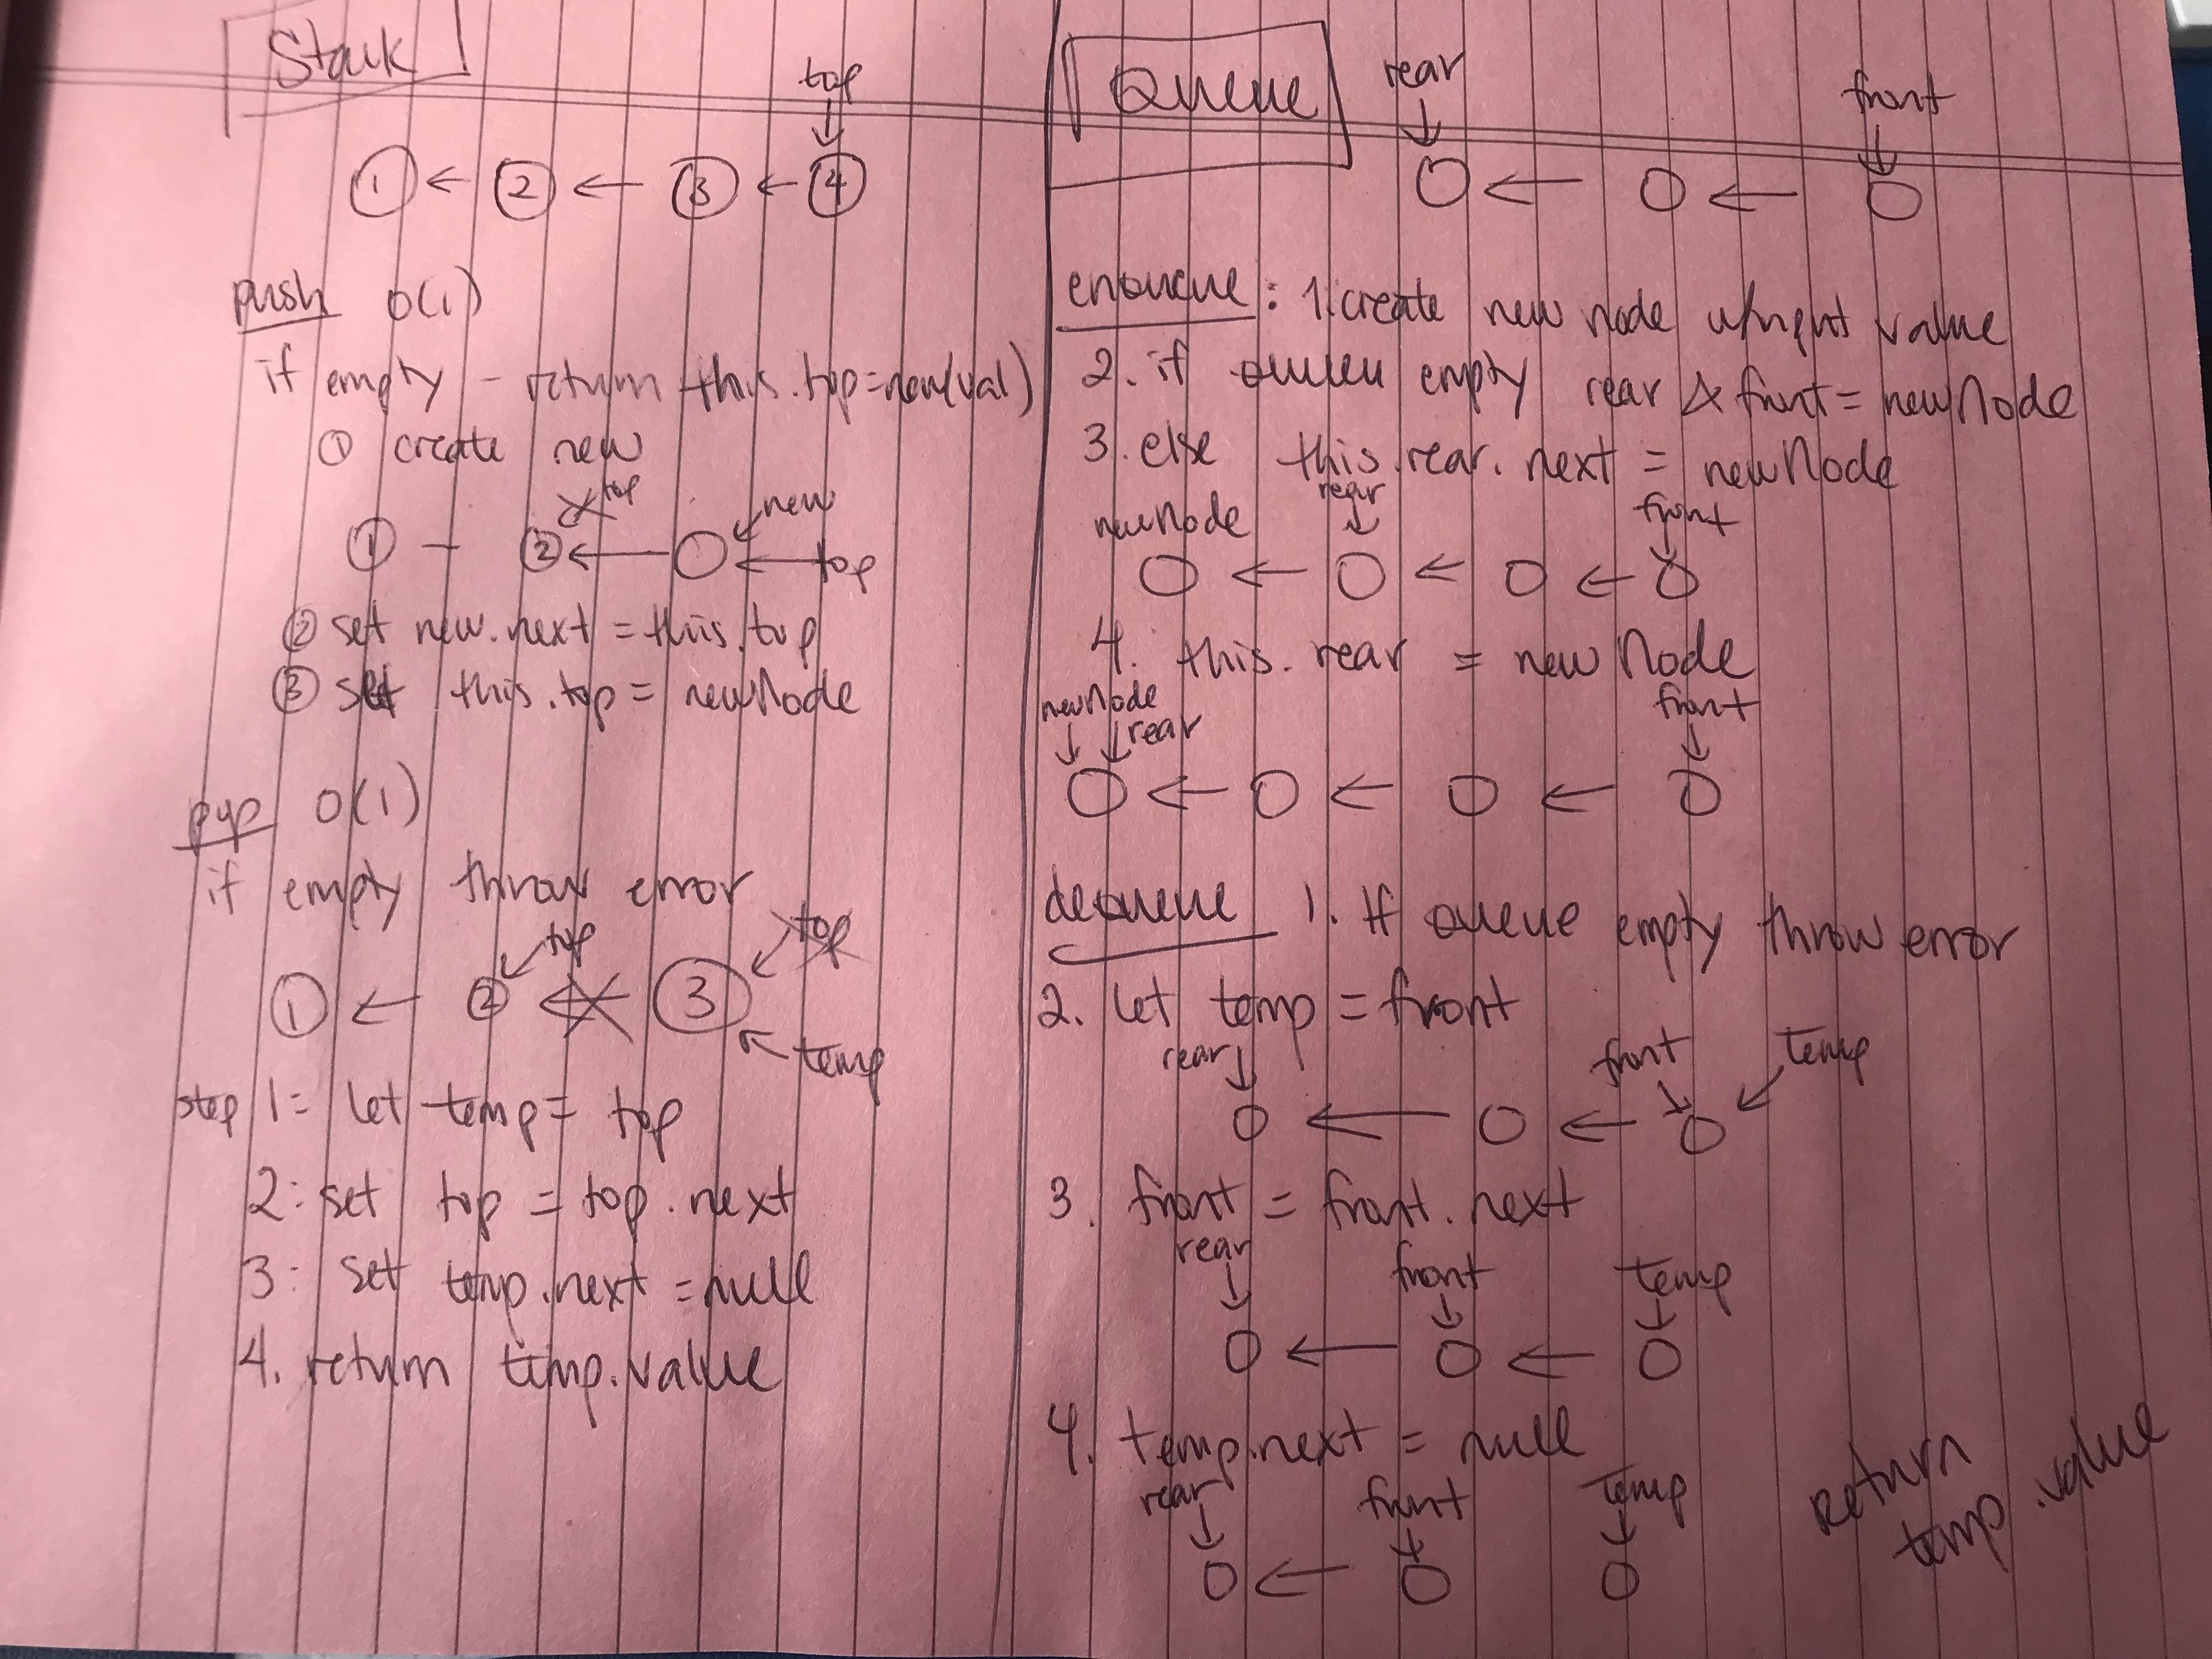 Stack
top
1 ← 2 ← 3 ← 4
push O(1)
if empty - return this.top=new(val)
① create new
top
new
1 - 2 ← top
② set new.next = this.top
③ set this.top = newNode
pop O(1)
if empty throw error
top top
1 ← 2 ← 3
temp
step 1: let temp = top
2: set top = top.next
3: set temp.next = null
4. return temp.value
Queue
rear front
enqueue: 1. create new node w/ value
2. if empty rear & front = newNode
3. else this.rear.next = newNode
newNode rear front
4. this.rear = newNode
newNode rear front
dequeue 1. If queue empty throw error
2. let temp = front
rear front temp
3. front = front.next
rear front temp
4. temp.next = null
rear front temp
return
temp.value